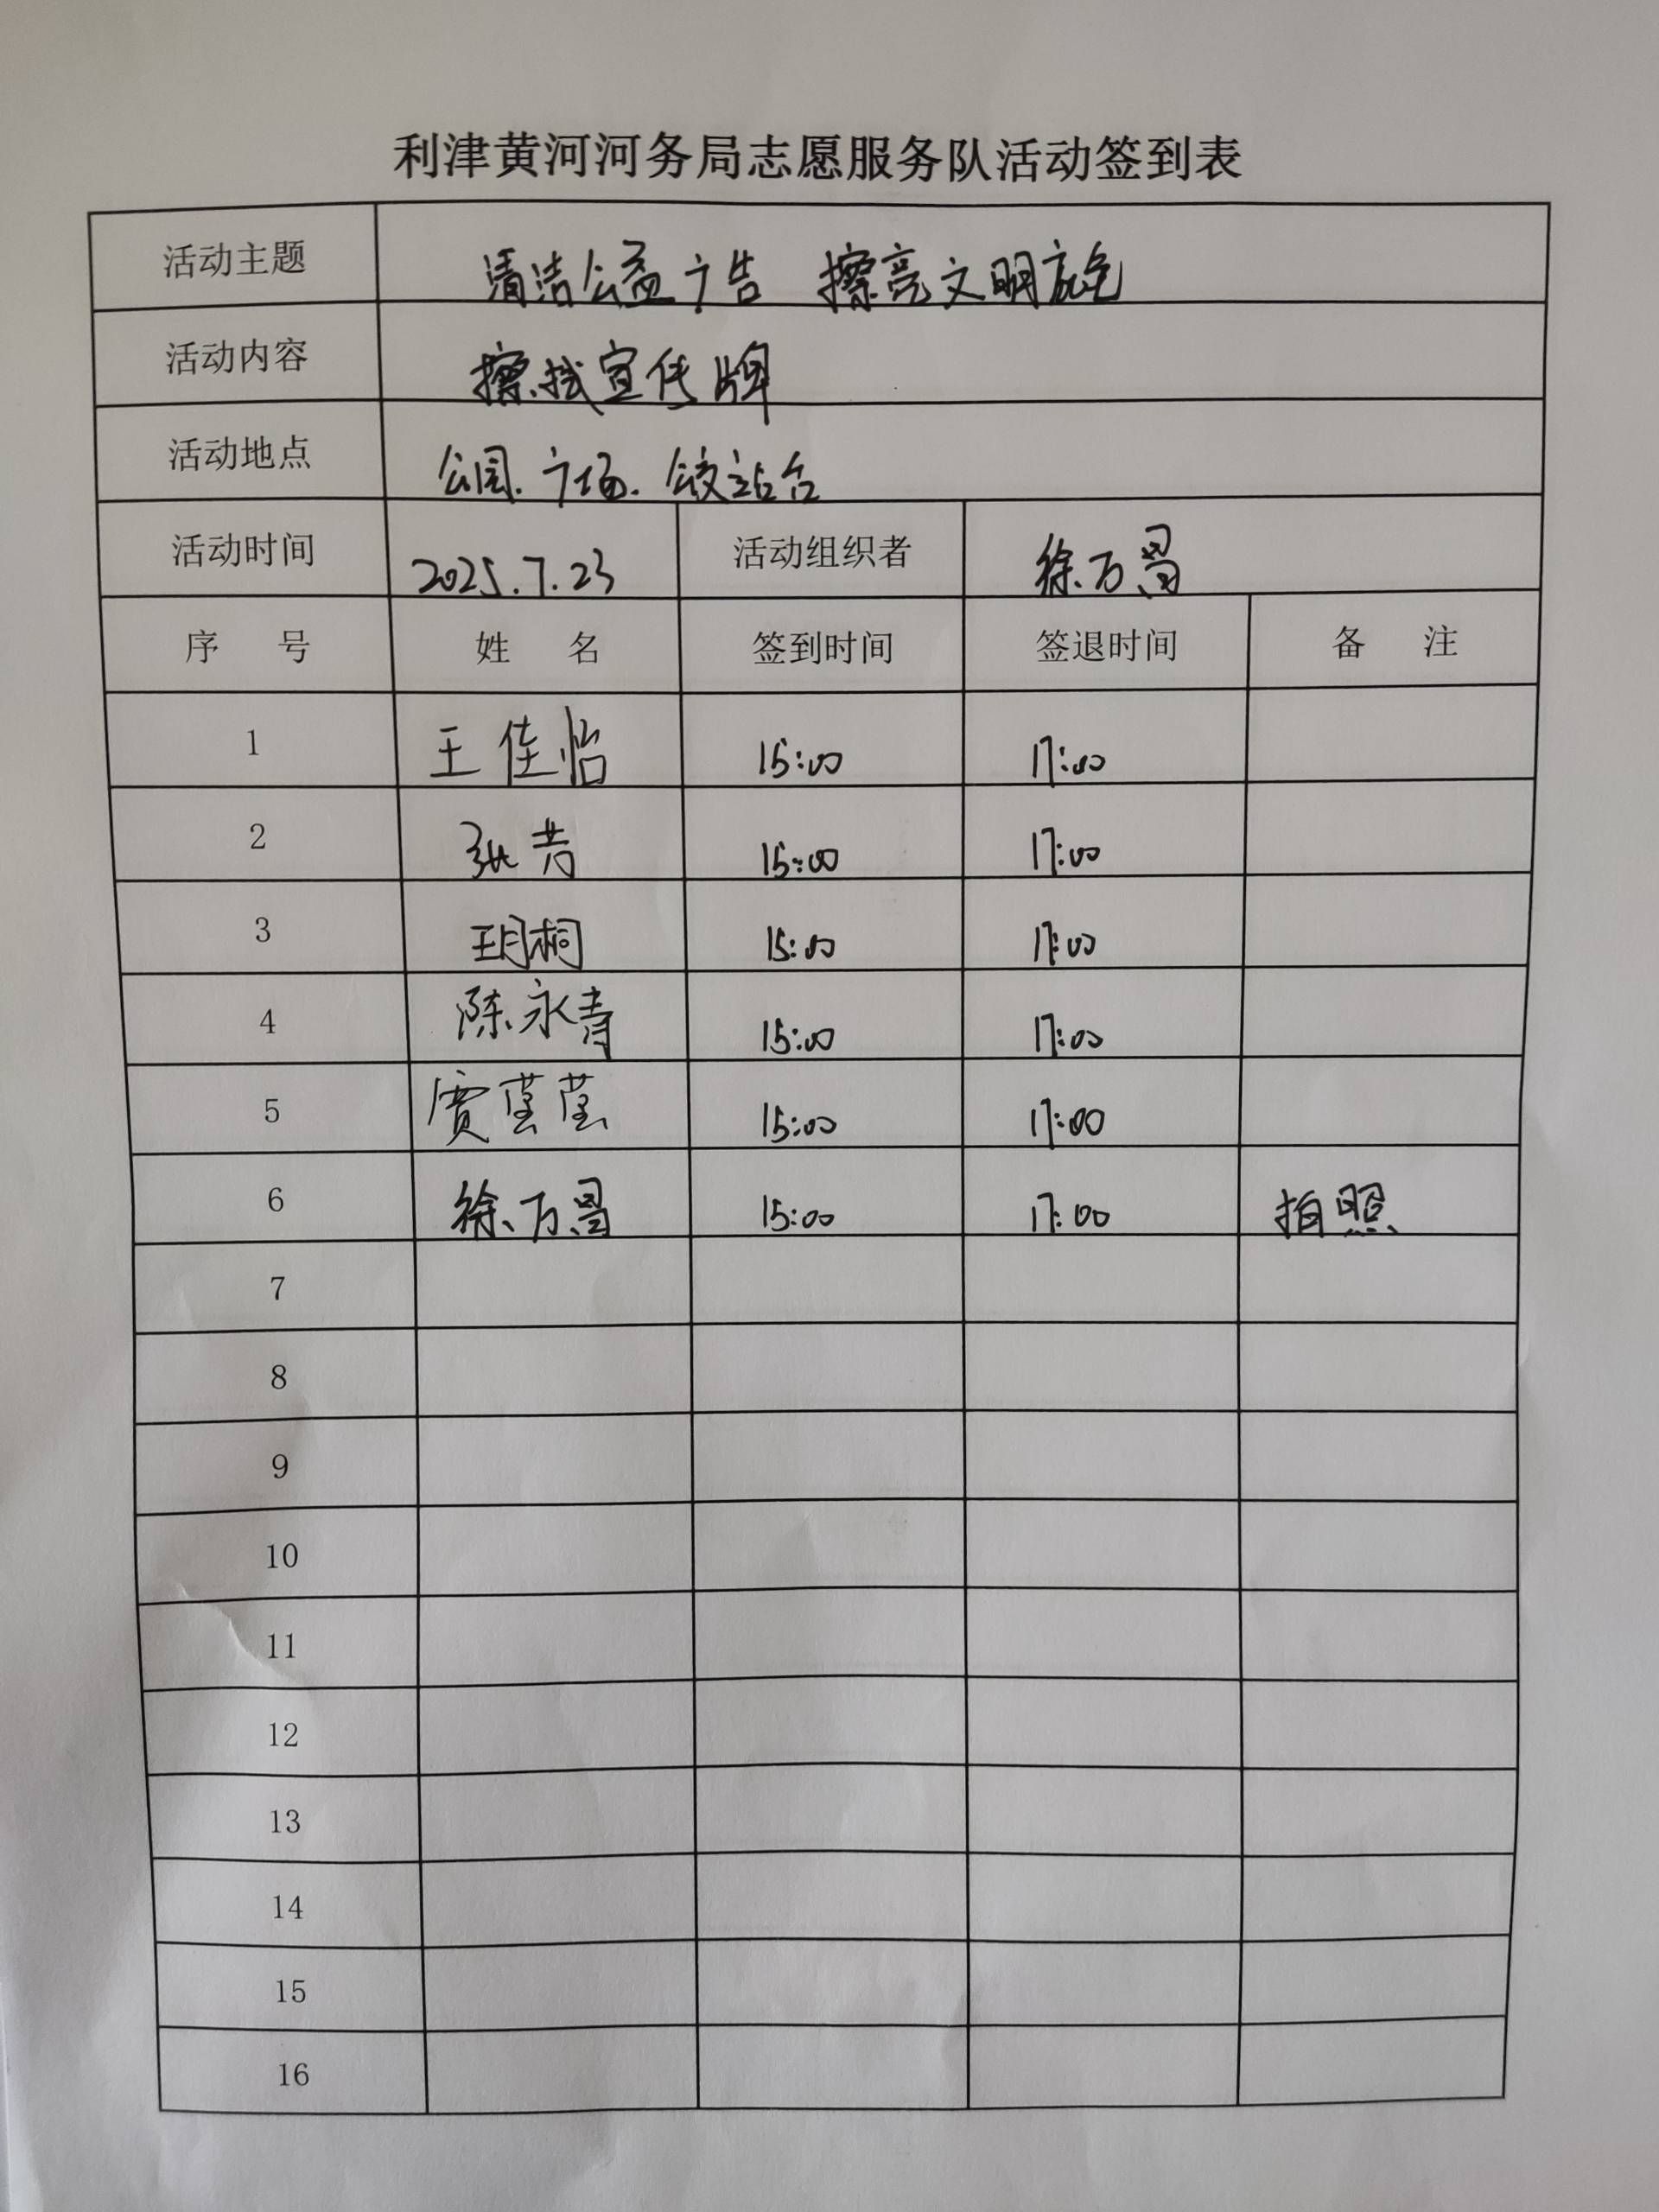 利津黄河河务局志愿服务队活动签到表
活动主题 清洁公益广告 擦亮文明底色
活动内容 擦拭宣传牌
活动地点 公园、广场、公交站台
活动时间 2025.7.23 活动组织者 徐万昌
序 号 姓 名 签到时间 签退时间 备 注
1 王佳怡 15:00 17:00
2 张 15:00 17:00
3 王月桐 15:00 17:00
4 陈永青 15:00 17:00
5 贾莹莹 15:00 17:00
6 徐万昌 15:00 17:00 拍照
7
8
9
10
11
12
13
14
15
16